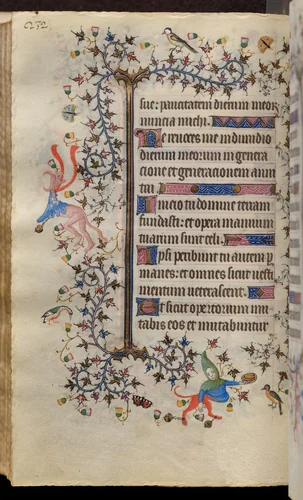 sue: paucitatem dierum meor
nuncia michi.
Ne reuoces me in dimidio
dierum meorum: in genera
cione et generacionem anni
tui.
Inicio tu domine terram
fundasti: et opera manuum
tuarum sunt celi.
Ipsi peribunt tu autem per
manes: et omnes sicut uesti
mentum ueterascent.
Et sicut opertorium mu
tabis eos et mutabuntur